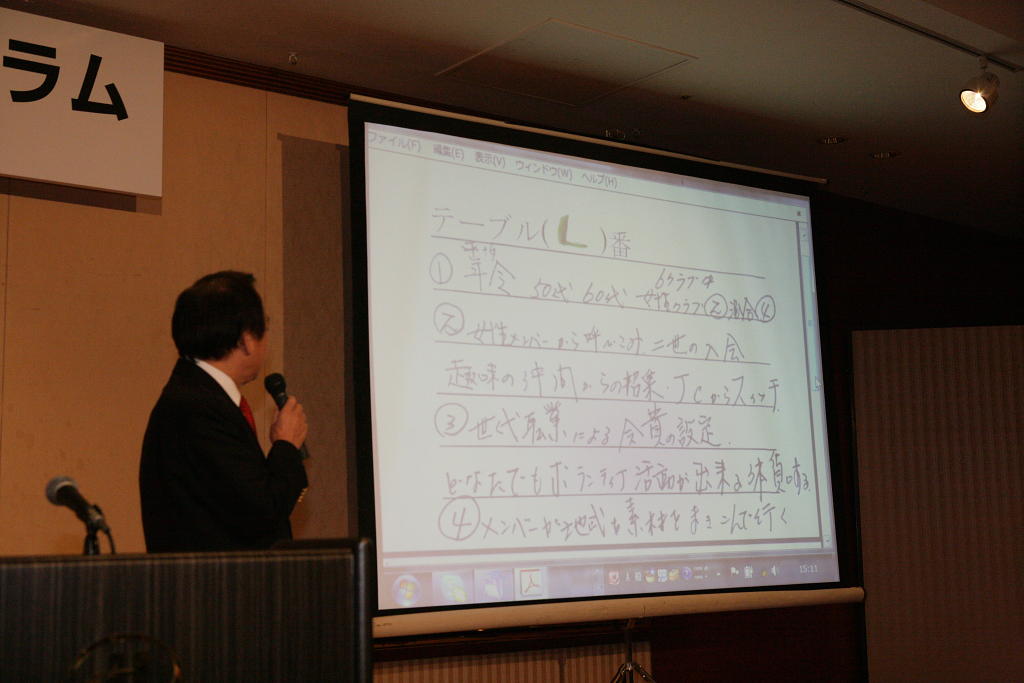 ラム
ファイル(F) 編集(E) 表示(V) ウィンドウ(W) ヘルプ(H)
テーブル( L )番
平均 6クラブ中
① 年令 50代 60代 女性クラブ② 混合④
② 女性メンバーから呼びこみ 二世の入会
趣味の仲間からの招集・JCからスイッチ
③ 世代職業による会費の設定.
どなたでもボランティア活動が出来る体質にする
④ メンバーが 素材をまきこんで行く
15:11